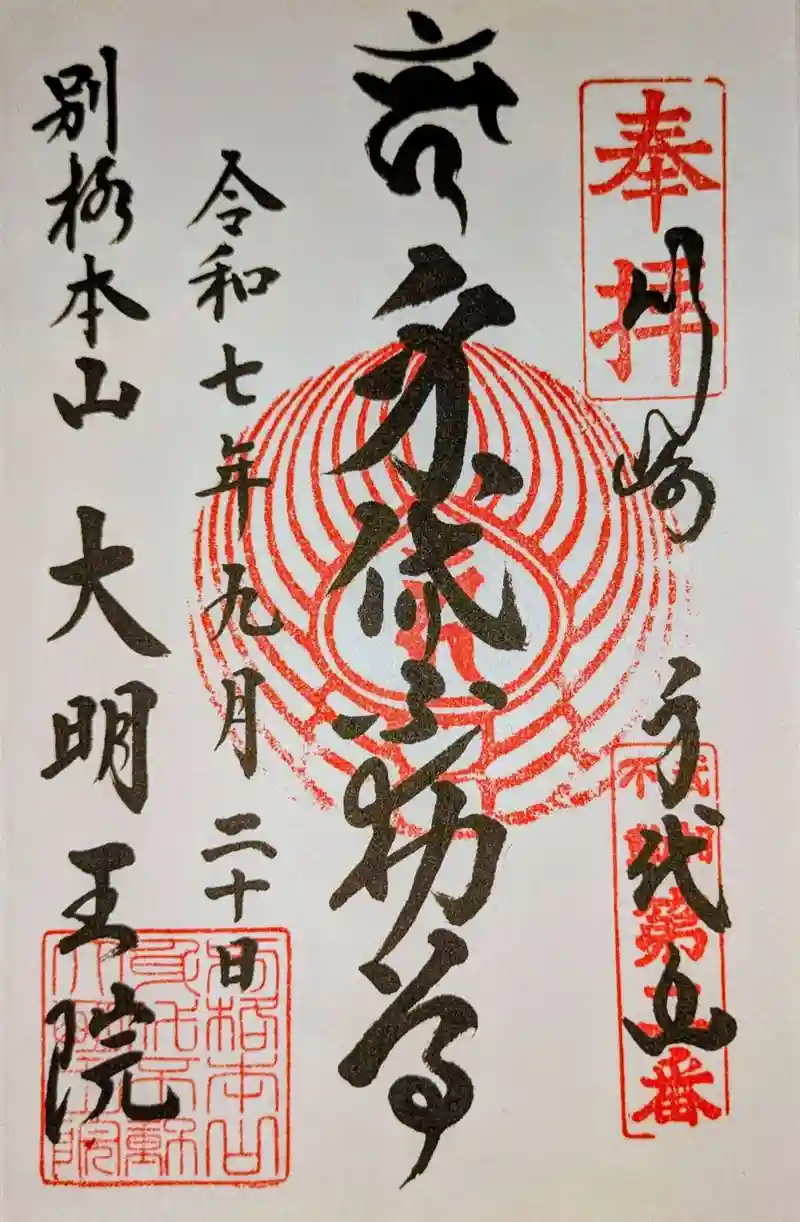 奉拝
川崎 身代山
第二番
身代不動尊
令和七年九月二十日
別格本山 大明王院
別格本山
身代不動
大明王院